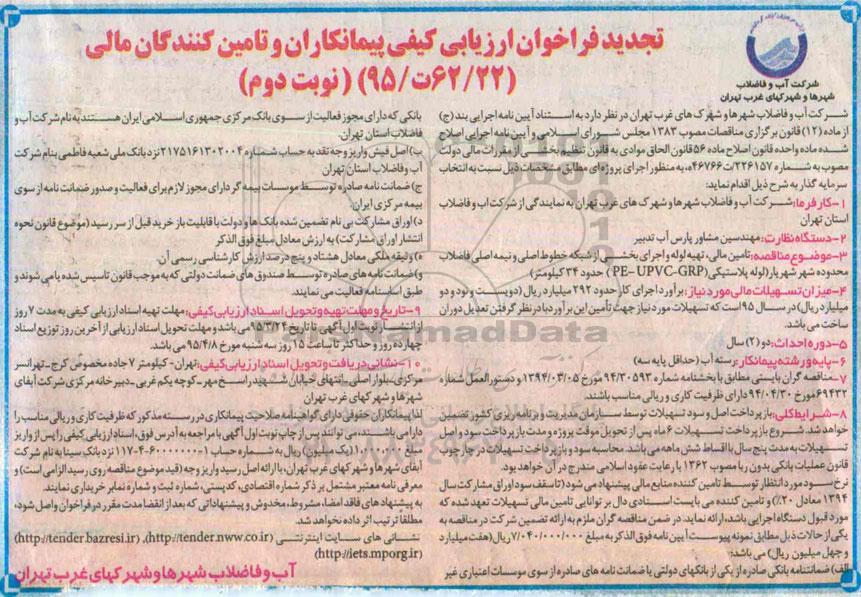 تجدید فراخوان ارزیابی کیفی پیمانکاران و تامین کنندگان مالی
(۶۲/۲۲ت/۹۵) (نوبت دوم)
شرکت آب و فاضلاب
شهرها و شهرکهای غرب تهران
شرکت آب و فاضلاب شهرها و شهرک های غرب تهران در نظر دارد به استناد آیین نامه اجرایی بند (ج)
از ماده (۱۲) قانون برگزاری مناقصات مصوب ۱۳۸۳ مجلس شورای اسلامی و آیین نامه اجرایی اصلاح
شده ماده واحده قانون اصلاح ماده ۵۶ قانون الحاق موادی به قانون تنظیم بخشی از مقررات مالی دولت
مصوب به شماره ۲۲۶۱۵۷/ت۴۶۷۶۶ه، به منظور اجرای پروژه ای مطابق مشخصات ذیل نسبت به انتخاب
سرمایه گذار به شرح ذیل اقدام نماید:
۱-کارفرما: شرکت آب و فاضلاب شهرها و شهرک های غرب تهران به نمایندگی از شرکت آب و فاضلاب
استان تهران
۲-دستگاه نظارت: مهندسین مشاور پارس آب تدبیر
۳-موضوع مناقصه: تامین مالی، تهیه لوله و اجرای بخشی از شبکه خطوط اصلی و نیمه اصلی فاضلاب
محدوده شهر شهریار (لوله پلاستیکی (PE- UPVC-GRP) حدود ۳۴ کیلومتر)
۴-میزان تسهیلات مالی مورد نیاز: برآورد اجرای کار حدود ۲۹۲ میلیارد ریال (دویست و نود و دو
میلیارد ریال) در سال ۹۵ است که تسهیلات مورد نیاز جهت تأمین این برآورد با در نظر گرفتن تعدیل دوران
ساخت می باشد.
۵-دوره احداث: دو (۲) سال
۶-پایه و رشته پیمانکار: رسته آب (حداقل پایه سه)
۷-مناقصه گران بایستی مطابق با بخشنامه شماره ۹۴/۳۰۵۹۳ مورخ ۱۳۹۴/۰۳/۰۵ و دستورالعمل شماره
۶۹۴۳۲ مورخ ۹۴/۰۴/۳۰ دارای ظرفیت کاری و ریالی مناسب باشند.
۸-شرایط کلی: باز پرداخت اصل و سود تسهیلات توسط سازمان مدیریت و برنامه ریزی کشور تضمین
خواهد شد. شروع باز پرداخت تسهیلات ۶ ماه پس از تحویل موقت پروژه و مدت باز پرداخت سود و اصل
تسهیلات به مدت پنج سال با اقساط شش ماهه می باشد. محاسبه سود و باز پرداخت تسهیلات در چارچوب
قانون عملیات بانکی بدون ربا مصوب ۱۳۶۲ با رعایت عقود اسلامی مندرج در آن خواهد بود.
نرخ سود مورد انتظار توسط تامین کننده منابع مالی پیشنهاد می شود (تا سقف سود اوراق مشارکت سال
۱۳۹۴ معادل ۲۰٪) و تامین کننده می بایست اسنادی دال بر توانایی تامین مالی تسهیلات تعهد شده که
مورد قبول دستگاه اجرایی باشد، ارائه نماید. در ضمن مناقصه گران ملزم به ارائه تضمین شرکت در مناقصه به
یکی از حالات ذیل مطابق نمونه پیوست آیین نامه فوق الذکر به مبلغ ۷/۰۴۰/۰۰۰/۰۰۰ ریال (هفت میلیارد
و چهل میلیون ریال) می باشد:
الف) ضمانتنامه بانکی صادره از یکی از بانکهای دولتی یا ضمانت نامه های صادره از سوی موسسات اعتباری غیر
بانکی که دارای مجوز فعالیت از سوی بانک مرکزی جمهوری اسلامی ایران هستند به نام شرکت آب و
فاضلاب استان تهران.
ب) اصل فیش واریز وجه نقد به حساب شماره ۲۱۷۵۱۶۱۳۰۲۰۰۴ نزد بانک ملی شعبه فاطمی بنام شرکت
آب و فاضلاب استان تهران
ج) ضمانت نامه صادره توسط موسسات بیمه گر دارای مجوز لازم برای فعالیت و صدور ضمانت نامه از سوی
بیمه مرکزی ایران.
د) اوراق مشارکت بی نام تضمین شده بانک ها و دولت با قابلیت باز خرید قبل از سر رسید (موضوع قانون نحوه
انتشار اوراق مشارکت) به ارزش معادل مبلغ فوق الذکر
ه) وثیقه ملکی معادل هشتاد و پنج درصد ارزش کارشناسی رسمی آن.
و) ضمانت نامه های صادره توسط صندوق های ضمانت دولتی که به موجب قانون تاسیس شده یا می شوند و
طبق اساسنامه فعالیت می نمایند.
۹-تاریخ و مهلت تهیه و تحویل اسناد ارزیابی کیفی: مهلت تهیه اسناد ارزیابی کیفی به مدت ۷ روز
از انتشار نوبت اول آگهی تا تاریخ ۹۵/۳/۲۴ می باشد و مهلت تحویل اسناد ارزیابی از آخرین روز توزیع اسناد
چهارده روز و حداکثر تا ساعت ۱۵ روز سه شنبه مورخ ۹۵/۴/۸ می باشد.
۱۰-نشانی دریافت و تحویل اسناد ارزیابی کیفی: تهران- کیلومتر ۷ جاده مخصوص کرج- تهرانسر
مرکزی- بلوار اصلی- انتهای خیابان شهید راسخ مهر- کوچه یکم غربی- دبیرخانه مرکزی شرکت آبفای
شهرها و شهر کهای غرب تهران
لذا پیمانکاران حقوقی دارای گواهینامه صلاحیت پیمانکاری در رسته مذکور که ظرفیت کاری و ریالی مناسب را
دارا می باشند، می توانند پس از چاپ نوبت اول آگهی با مراجعه به آدرس فوق، اسناد ارزیابی کیفی را پس از واریز
آبفای شهرها و شهر کهای غرب تهران، با ارائه اصل رسید واریز وجه (قید موضوع مناقصه روی رسید الزامی است) و
معرفی نامه معتبر مشتمل بر ذکر شماره اقتصادی، کد پستی، شماره ثبت و شماره نمابر خریداری نمایند.
به پیشنهادهای فاقد امضا، مشروط، مخدوش و پیشنهاداتی که بعد از انقضا مدت مقرر در فراخوان واصل شود،
مطلقا ترتیب اثر داده نخواهد شد.
نشانی های سایت اینترنتی (http://tender.nww.co.ir)، (http://tender.bazresi.ir)
(http://iets.mporg.ir)
آب و فاضلاب شهرها و شهر کهای غرب تهران